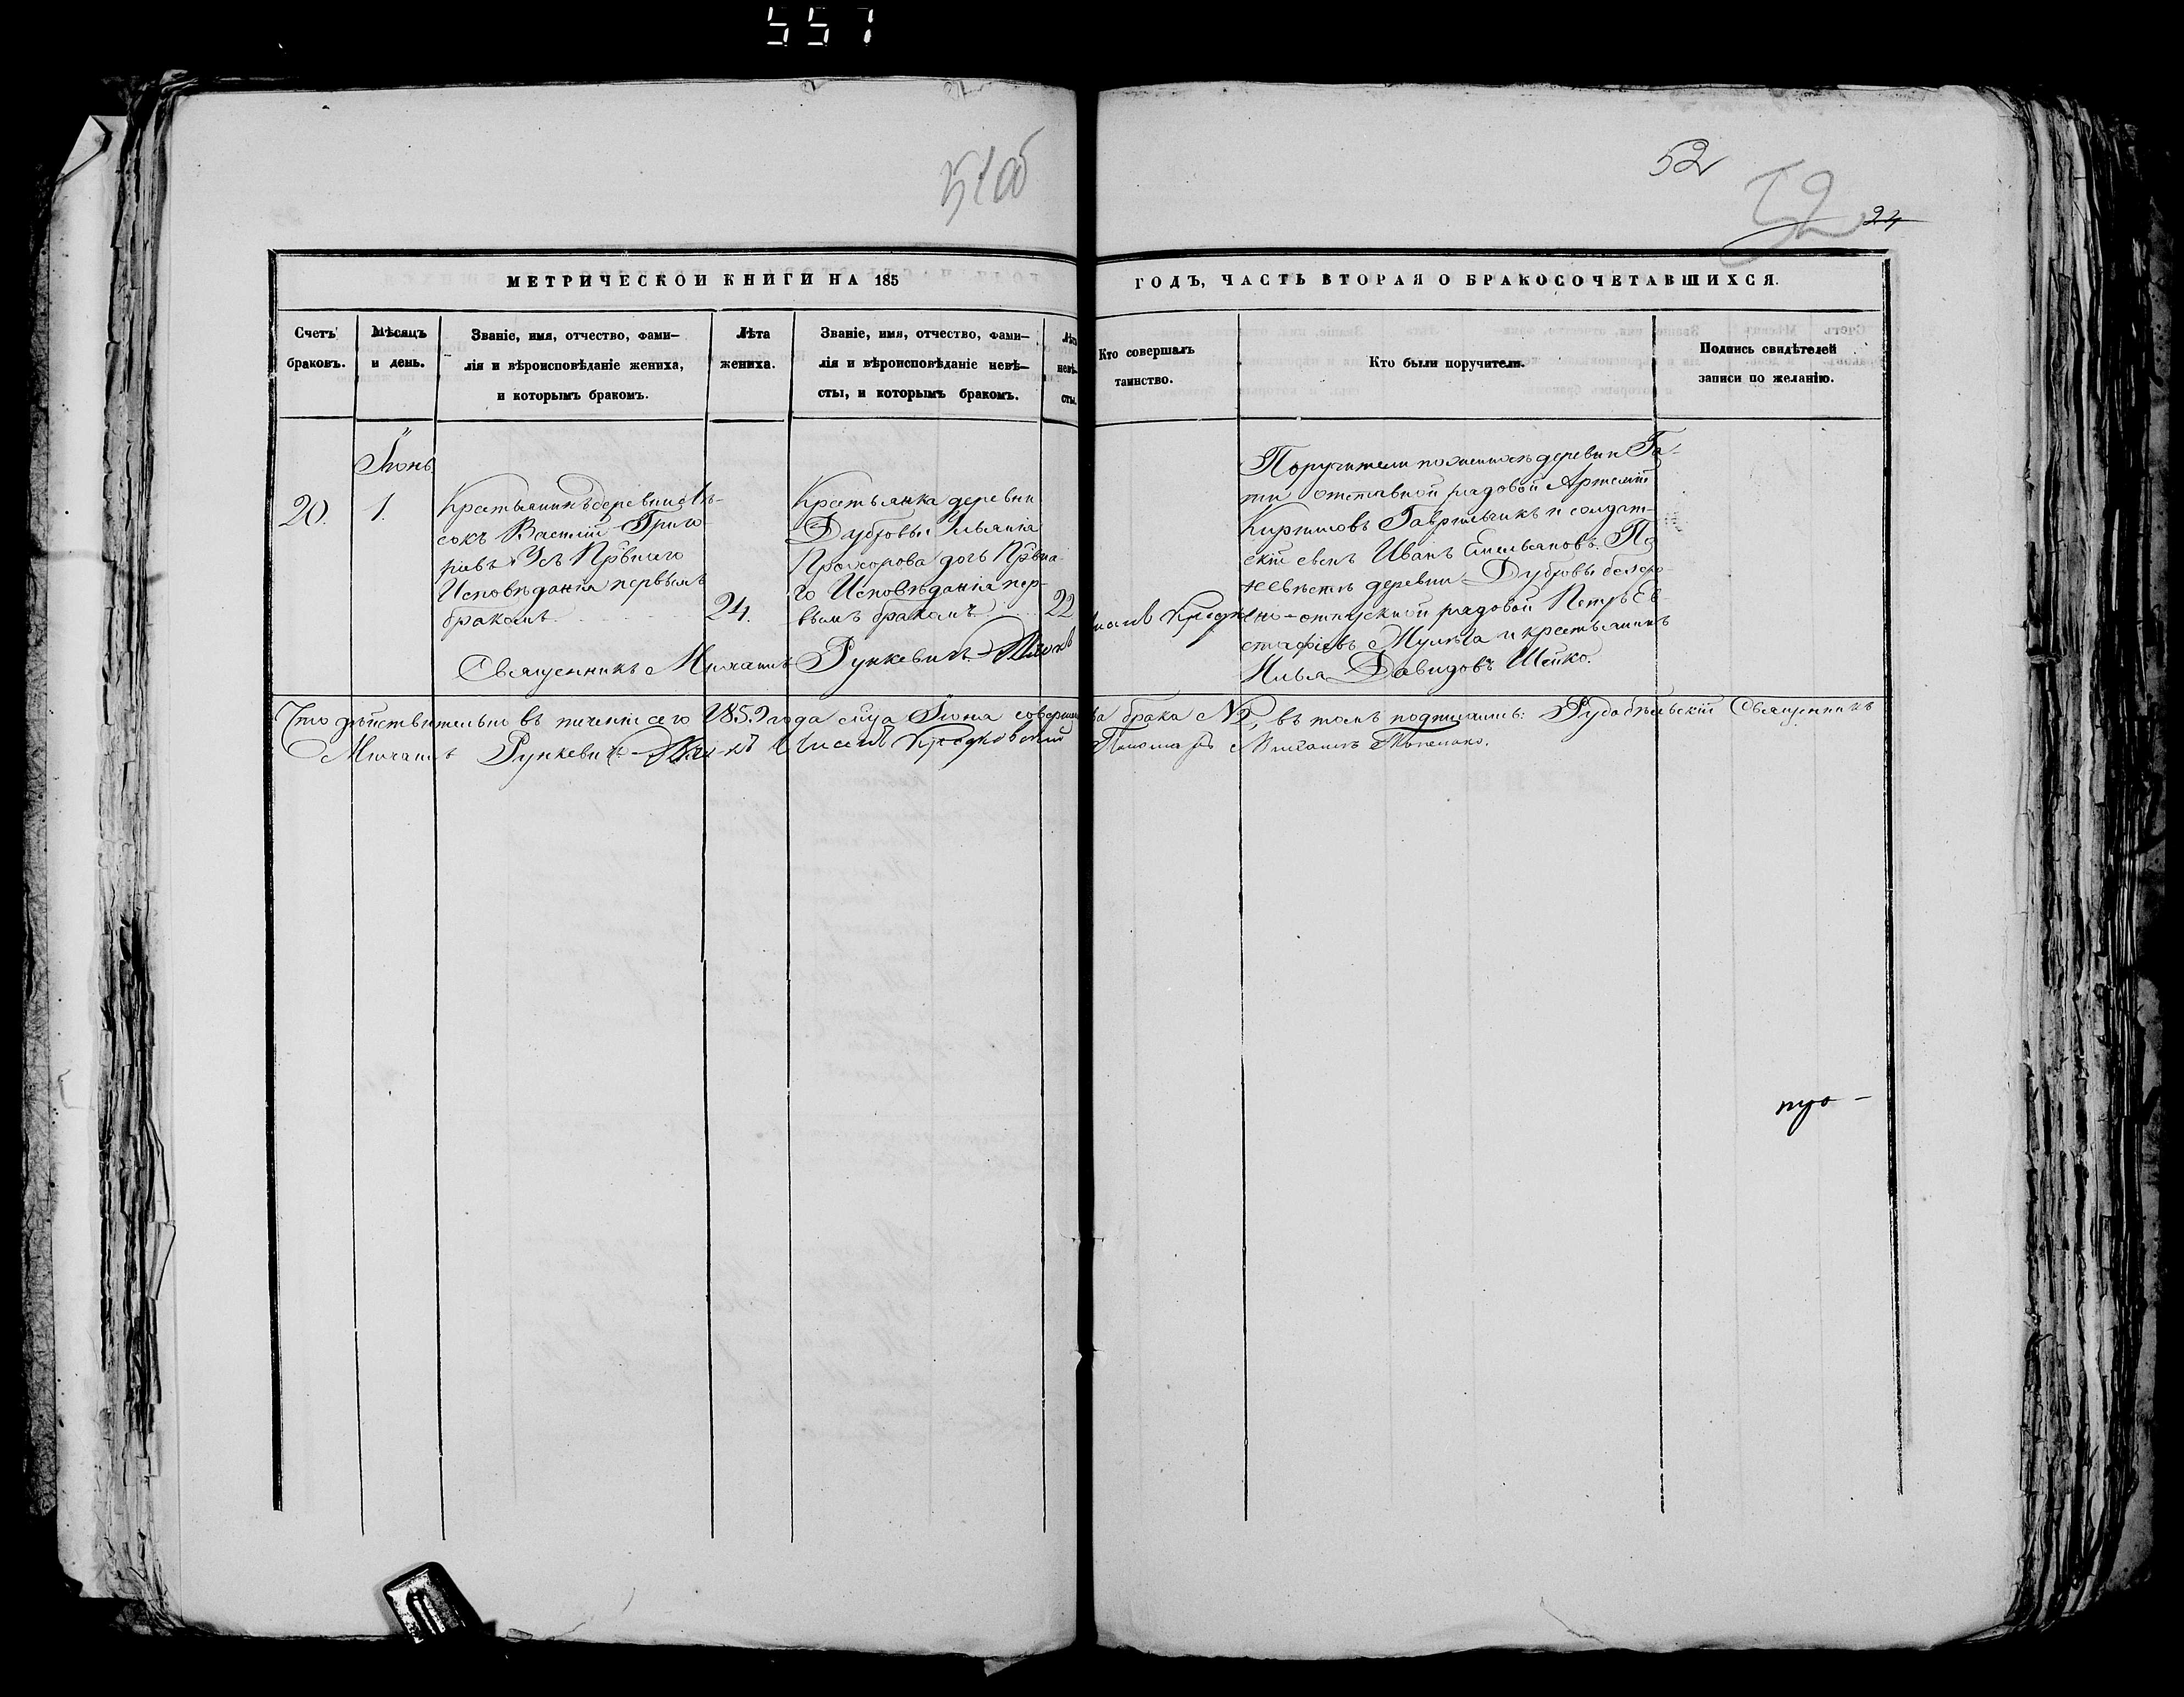 557
51об
52
52
24
МЕТРИЧЕСКОЙ КНИГИ НА 185
ГОДЪ, ЧАСТЬ ВТОРАЯ О БРАКОСОЧЕТАВШИХСЯ.
Счетъ
браковъ.
Мѣсяцъ
и день.
Званіе, имя, отчество, фами-
лія и вѣроисповѣданіе жениха,
и которымъ бракомъ.
Лѣта
жениха.
Званіе, имя, отчество, фами-
лія и вѣроисповѣданіе невѣ-
сты, и которымъ бракомъ.
Лѣта
невѣ-
сты.
Кто совершалъ
таинство.
Кто были поручители.
Подпись свидѣтелей
записи по желанію.
Іюнь
20.
1.
Крестьянинъ деревни Лѣ-
сокъ Василій Григо
ровъ Усъ Првнаго
Исповѣданія первымъ
бракомъ
24.
Крестьянка деревни
Дубровы Ульяніа
Прохорова дочь Првна
го Исповѣданія пер-
вымъ бракомъ
22
Священникъ Михаилъ Рункевичъ
Поручители по женихѣ деревни Га-
ти отставной рядовой Артемій
Кирилловъ Гаврильчикъ и солдат-
скій сынъ Иванъ Емельяновъ. По
невѣстѣ деревни Дубровы безсро
чно-отпускной рядовой Петръ Ев
стафіевъ и крестьянинъ
Илья Давидовъ Шейко.
Что дѣйствительно въ теченіи сего 1859 года мца Іюна соверше
на брака №, въ томъ подписались: Рудобѣльскій Священникъ
Михаилъ Рункевичъ
Пономарь Михаилъ